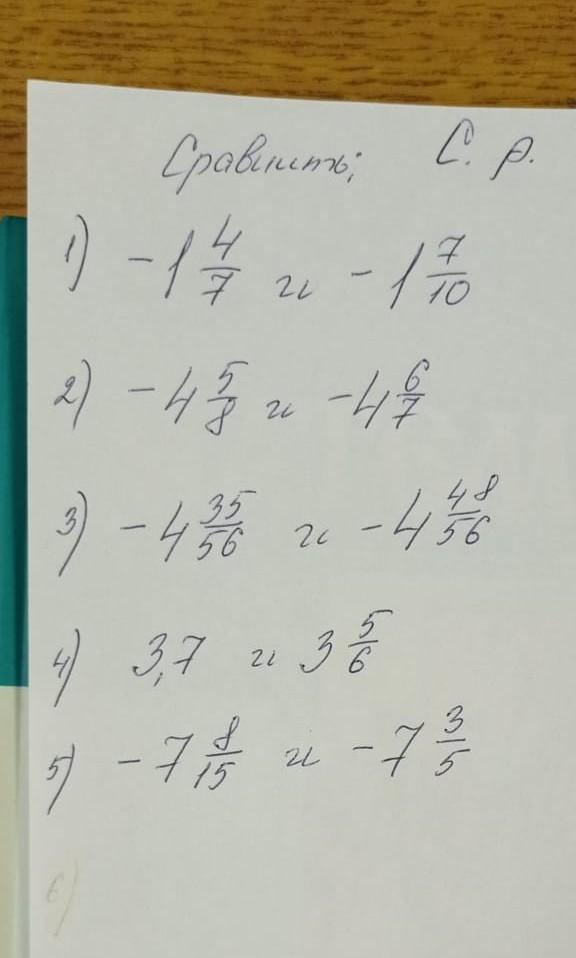 Сравнить; С. р.
1) -1 4/7 и -1 7/10
2) -4 5/8 и -4 6/7
3) -4 35/56 и -4 48/56
4) 3,7 и 3 5/6
5) -7 8/15 и -7 3/5
6)